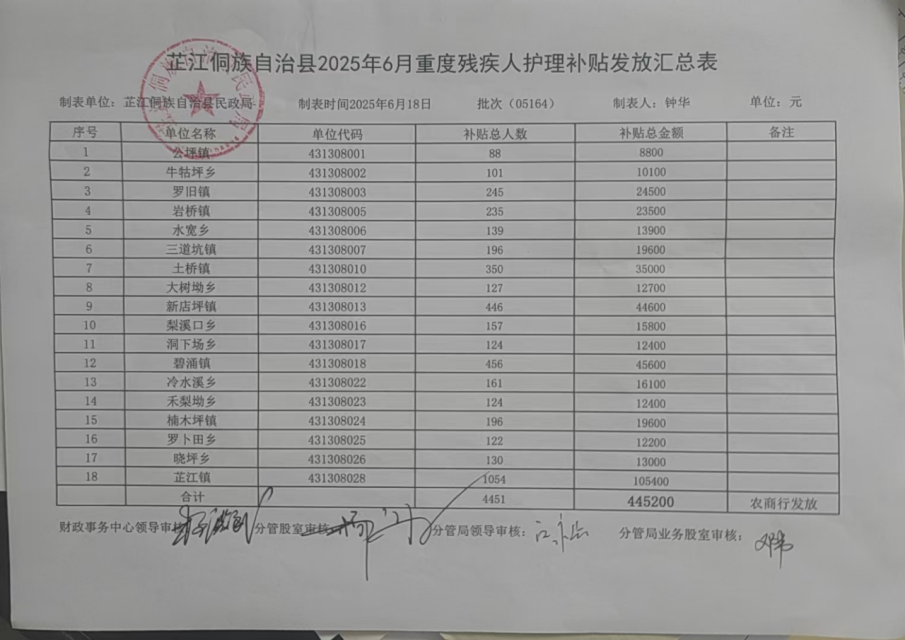 芷江侗族自治县2025年6月重度残疾人护理补贴发放汇总表
制表单位：芷江侗族自治县民政局 制表时间2025年6月18日 批次（05164） 制表人：钟华 单位：元
序号 单位名称 单位代码 补贴总人数 补贴总金额 备注
1 公坪镇 431308001 88 8800
2 牛牯坪乡 431308002 101 10100
3 罗旧镇 431308003 245 24500
4 岩桥镇 431308005 235 23500
5 水宽乡 431308006 139 13900
6 三道坑镇 431308007 196 19600
7 土桥镇 431308010 350 35000
8 大树坳乡 431308012 127 12700
9 新店坪镇 431308013 446 44600
10 梨溪口乡 431308016 157 15800
11 洞下场乡 431308017 124 12400
12 碧涌镇 431308018 456 45600
13 冷水溪乡 431308022 161 16100
14 禾梨坳乡 431308023 124 12400
15 楠木坪镇 431308024 196 19600
16 罗卜田乡 431308025 122 12200
17 晓坪乡 431308026 130 13000
18 芷江镇 431308028 1054 105400
合计 4451 445200 农商行发放
财政事务中心领导审 分管股室审核： 分管局领导审核： 分管局业务股室审核：